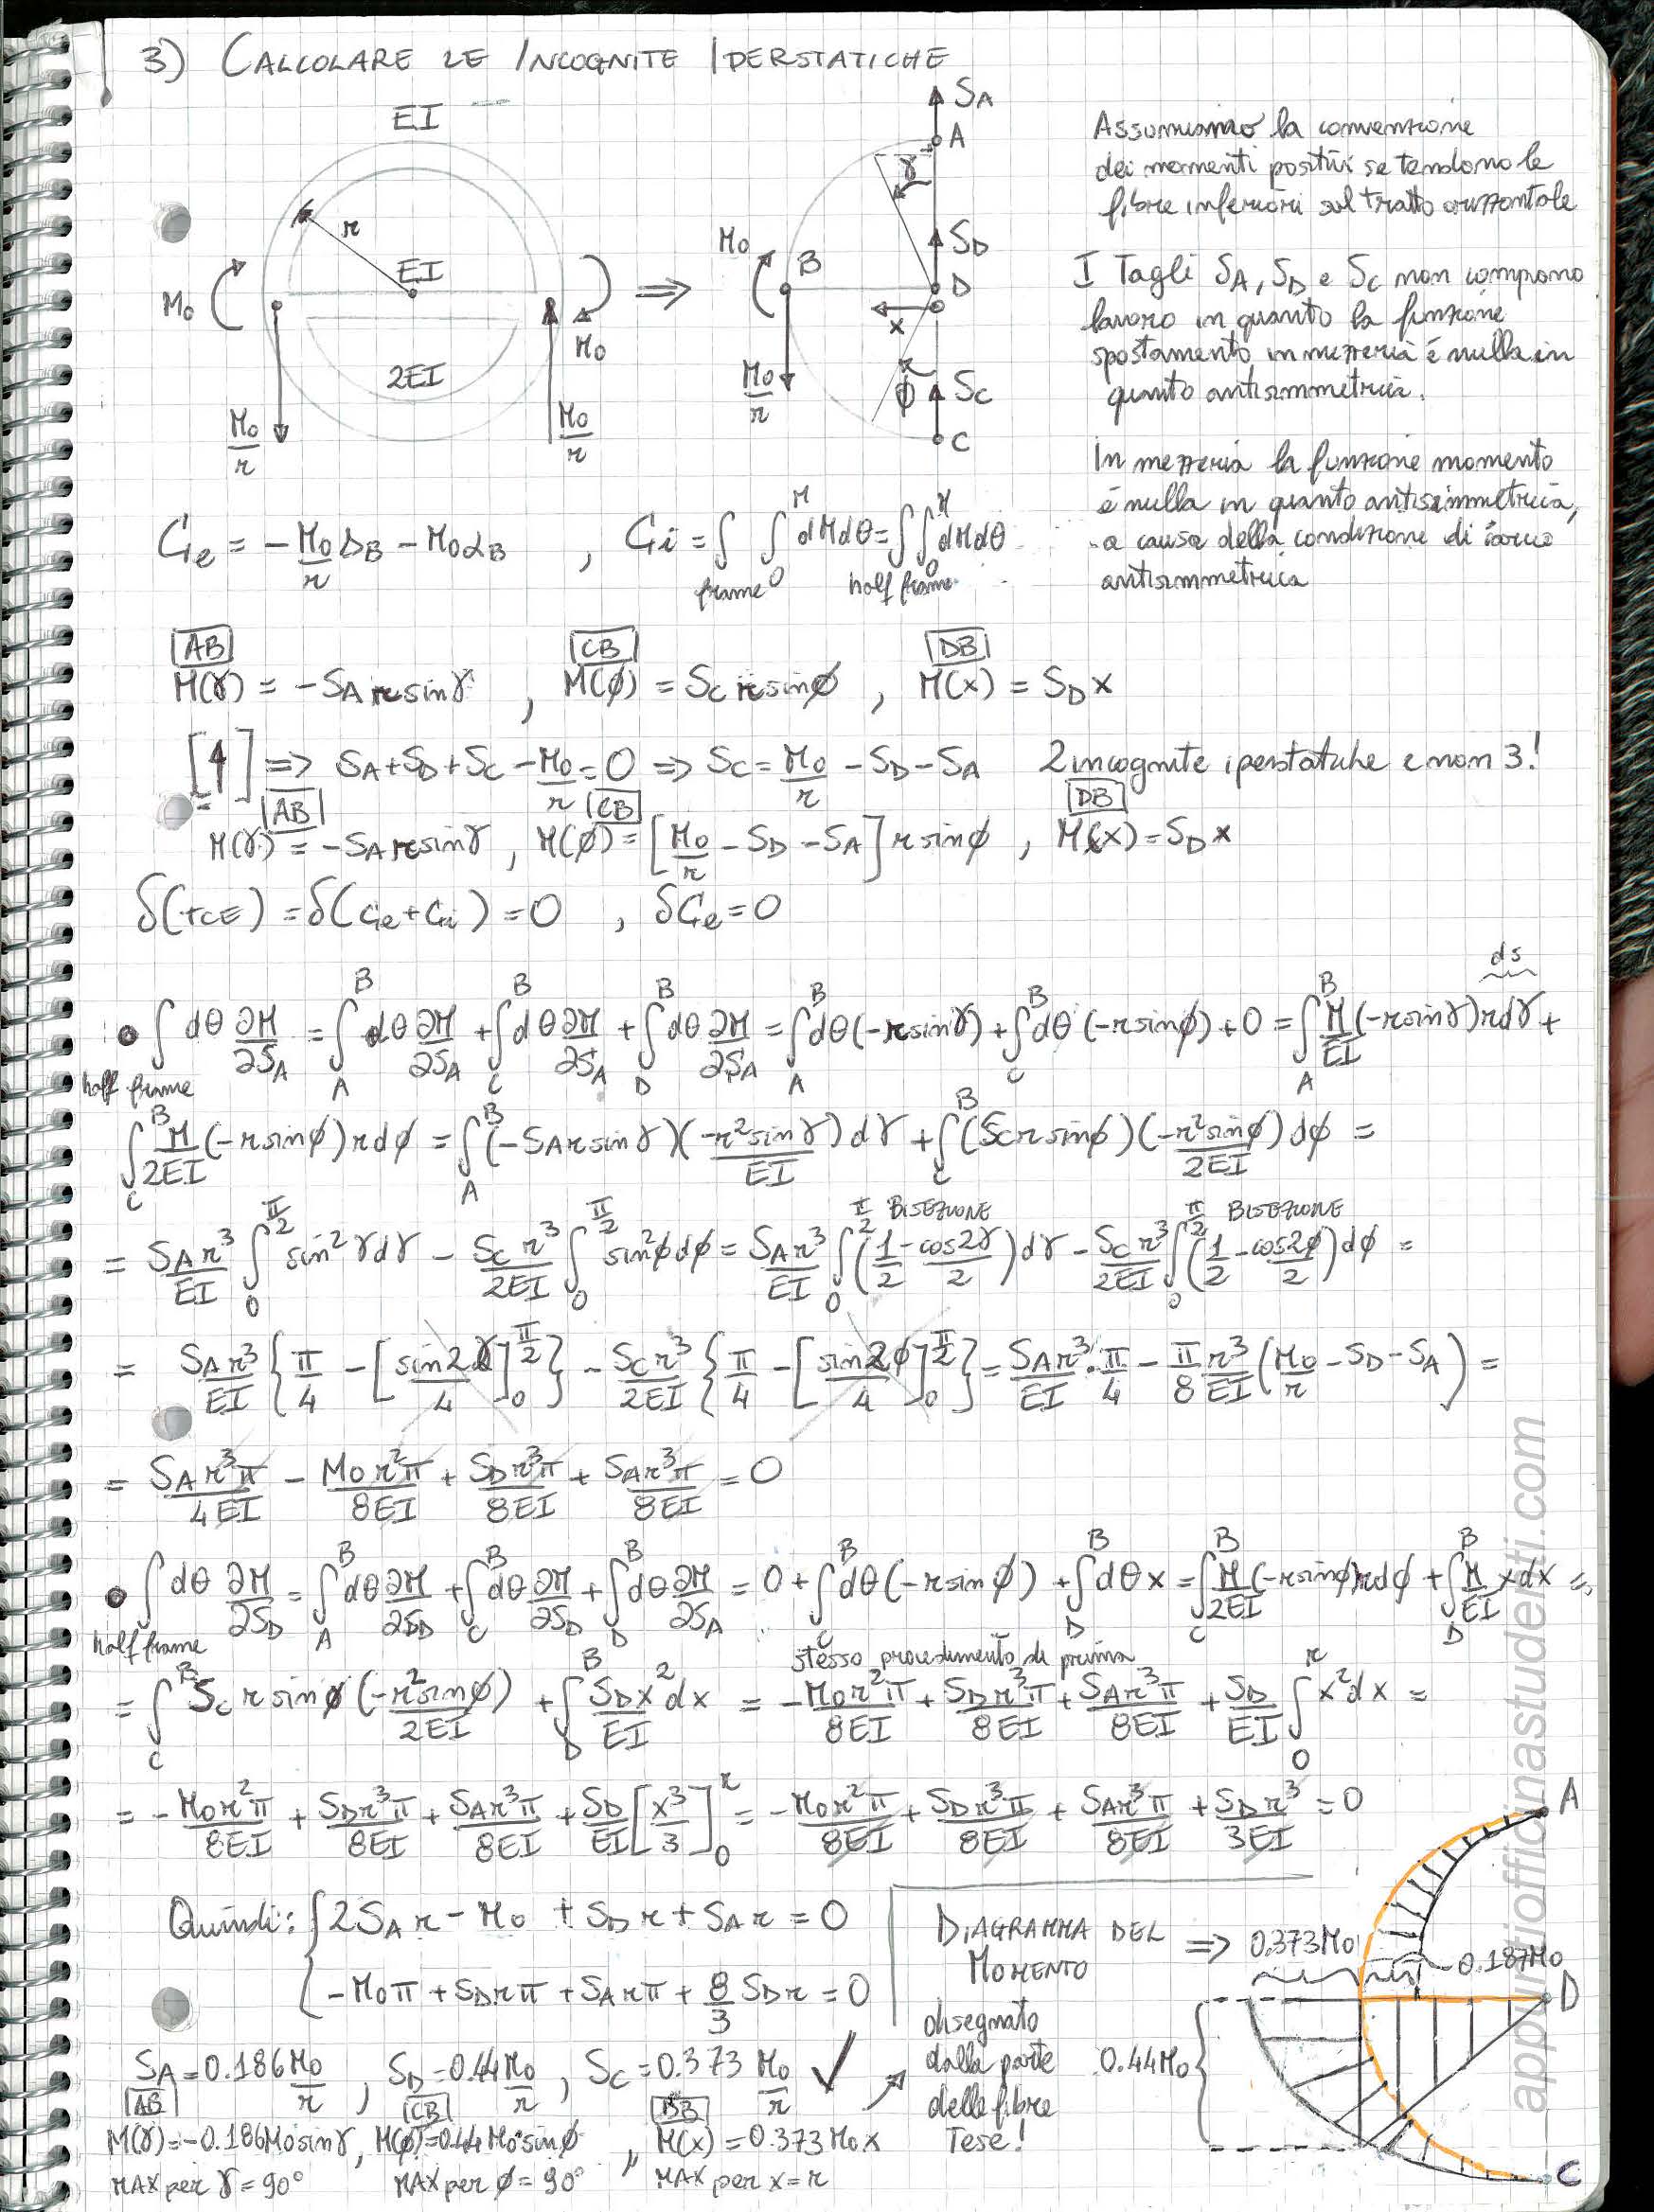 3) CALCOLARE LE INCOGNITE IPERSTATICHE
EI
r
EI
2EI
M₀
M₀
M₀/r
M₀/r
⇒
S_A
A
γ
S_D
D
M₀
B
x
M₀/r
φ
S_C
C
Assumiamo la convenzione
dei momenti positivi se tendono le
fibre inferiori sul tratto orizzontale
I Tagli S_A, S_D e S_C non compiono
lavoro in quanto la funzione
spostamento in mezzeria é nulla in
quanto antisimmetrica.
In mezzeria la funzione momento
é nulla in quanto antisimmetrica,
a causa della condizione di carico
antisimmetrica
C_e = -M₀/r Δ_B - M₀α_B , C_i = ∫ frame ∫₀^M dMdθ = ∫ half frame ∫₀^M dMdθ
AB CB DB
M(γ) = -S_A r sinγ , M(φ) = S_C r sinφ , M(x) = S_D x
[↑] ⇒ S_A + S_D + S_C - M₀/r = 0 ⇒ S_C = M₀/r - S_D - S_A 2 incognite iperstatiche e non 3!
AB CB DB
M(γ) = -S_A r sinγ , M(φ) = [M₀/r - S_D - S_A] r sinφ , M(x) = S_D x
δ(TCE) = δ(C_e + C_i) = 0 , δC_e = 0
• ∫ half frame dθ ∂M/∂S_A = ∫_A^B dθ ∂M/∂S_A + ∫_C^B dθ ∂M/∂S_A + ∫_D^B dθ ∂M/∂S_A = ∫_A^B dθ(-r sinγ) + ∫_C^B dθ(-r sinφ) + 0 = ∫_A^B M/EI (-r sinγ) r dγ + ds
∫_C^B M/2EI (-r sinφ) r dφ = ∫_A^B (-S_A r sinγ)(-r² sinγ/EI) dγ + ∫_C^B (S_C r sinφ)(-r² sinφ/2EI) dφ =
= S_A r³/EI ∫₀^{π/2} sin²γ dγ - S_C r³/2EI ∫₀^{π/2} sin²φ dφ = S_A r³/EI ∫₀^{π/2} BISEZIONE (1/2 - cos2γ/2) dγ - S_C r³/2EI ∫₀^{π/2} BISEZIONE (1/2 - cos2φ/2) dφ =
= S_A r³/EI {π/4 - [sin2γ/4]₀^{π/2}} - S_C r³/2EI {π/4 - [sin2φ/4]₀^{π/2}} = S_A r³/EI · π/4 - π/8 r³/EI (M₀/r - S_D - S_A) =
= S_A r³π/4EI - M₀r²π/8EI + S_D r³π/8EI + S_A r³π/8EI = 0
• ∫ half frame dθ ∂M/∂S_D = ∫_A^B dθ ∂M/∂S_D + ∫_C^B dθ ∂M/∂S_D + ∫_D^B dθ ∂M/∂S_A = 0 + ∫_C^B dθ(-r sinφ) + ∫_D^B dθ x = ∫_C^B M/2EI (-r sinφ) r dφ + ∫_D^B M/EI x dx =
stesso procedimento di prima
= ∫_C^B S_C r sinφ (-r² sinφ/2EI) + ∫_D^B S_D x²/EI dx = -M₀r²π/8EI + S_D r³π/8EI + S_A r³π/8EI + S_D/EI ∫₀^r x² dx =
= -M₀r²π/8EI + S_D r³π/8EI + S_A r³π/8EI + S_D/EI [x³/3]₀^r = -M₀r²π/8EI + S_D r³π/8EI + S_A r³π/8EI + S_D r³/3EI = 0
Quindi: { 2S_A r - M₀ + S_D r + S_A r = 0
-M₀π + S_D rπ + S_A rπ + 8/3 S_D r = 0
S_A = 0.186 M₀/r , S_D = 0.44 M₀/r , S_C = 0.373 M₀/r ✓
AB CB DB
M(γ) = -0.186 M₀ sinγ , M(φ) = 0.44 M₀ sinφ , M(x) = 0.373 M₀ x
MAX per γ = 90° MAX per φ = 90° MAX per x = r
DIAGRAMMA DEL
MOMENTO
⇒ 0.373M₀
disegnato
dalla parte
delle fibre
Tese!
0.187M₀
0.44M₀
A
D
C
appuntiofficinastudenti.com